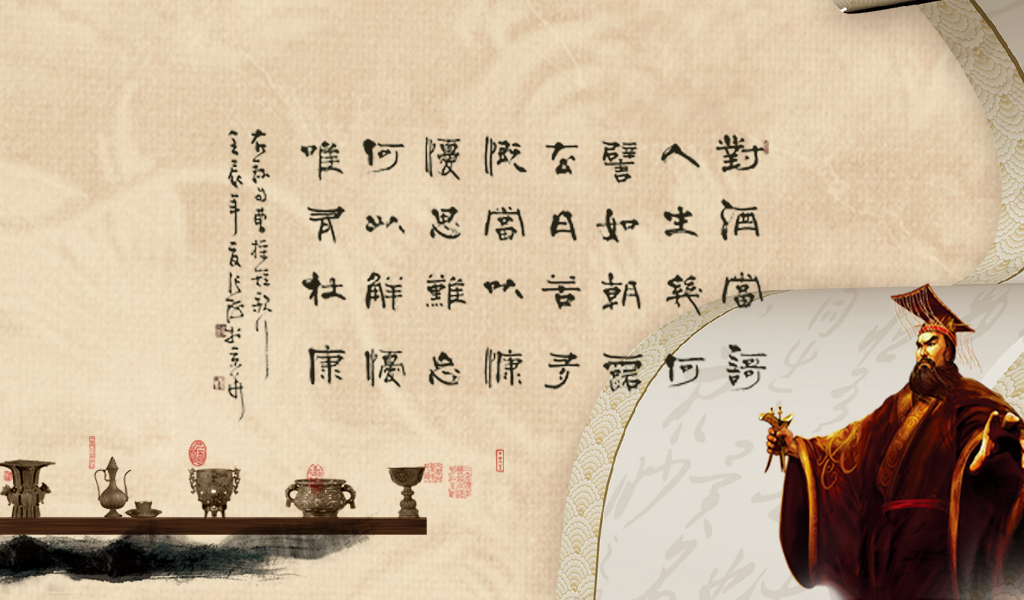 對酒當謌
人生幾何
譬如朝露
去日苦多
慨當以慷
懮思難忘
何以解懮
唯有杜康
右曹操短歌行
壬辰年夏於京華